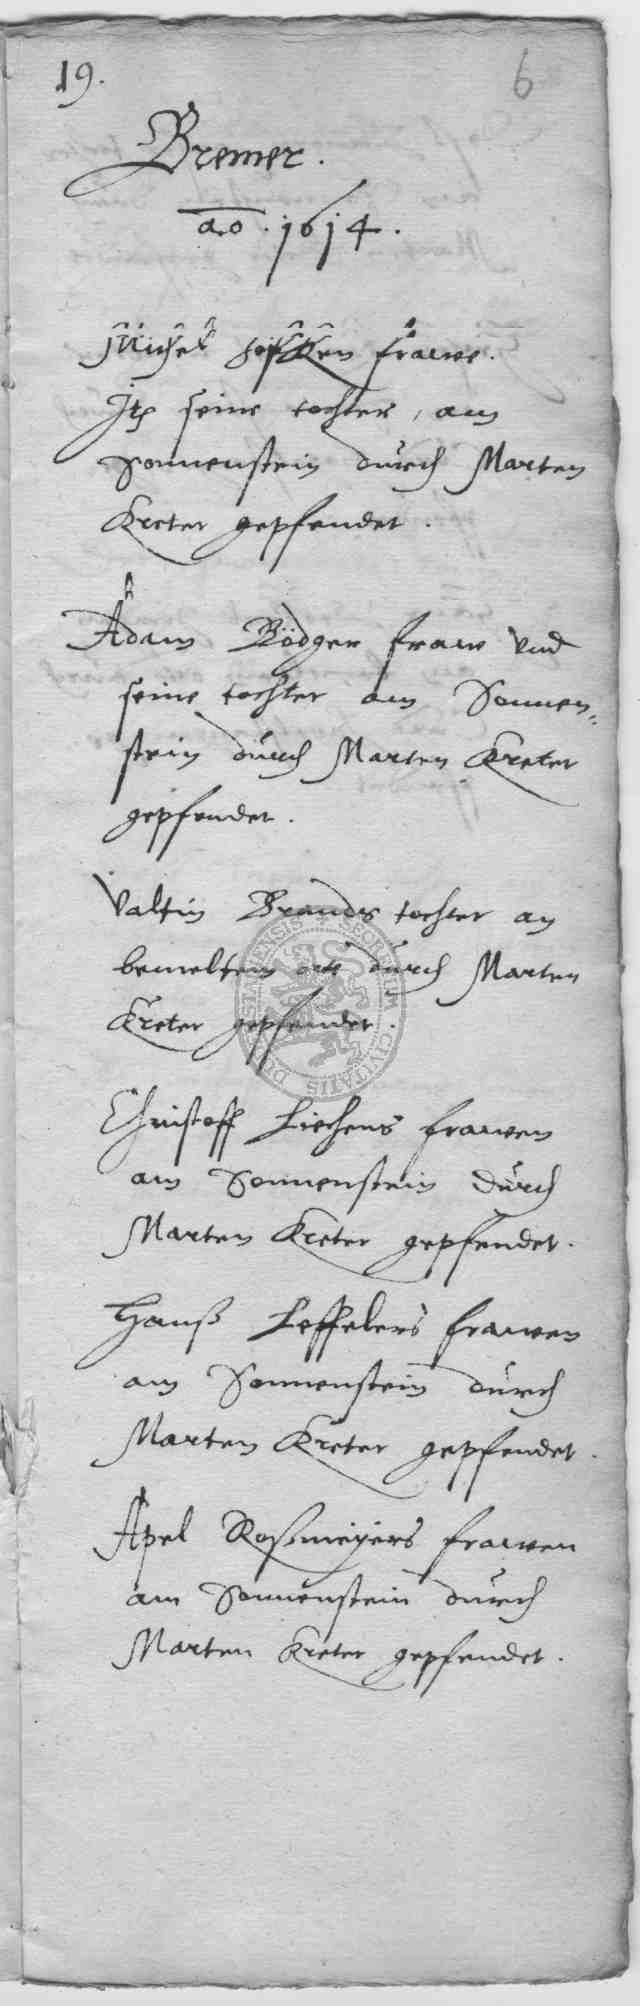 19.
6
Bremer.
ao. 1614.
Michel frawe.
Itz seine tochter, am
Sonnenstein durch Marten
Kreter gepfendet.
Adam Bödger fraw vnd
seine tochter am Sonnen=
stein durch Marten Kreter
gepfendet.
Valtin Brandes tochter an
bemeltem ort durch Marten
Kreter gepfendet.
Christoff Liesens frawen
am Sonnenstein durch
Marten Kreter gepfendet.
Hanß Leffelers frawen
am Sonnenstein durch
Marten Kreter gepfendet.
Apel Roßmeijers frawen
am Sonnenstein durch
Marten Kreter gepfendet.
SECRETUM CIVITATIS